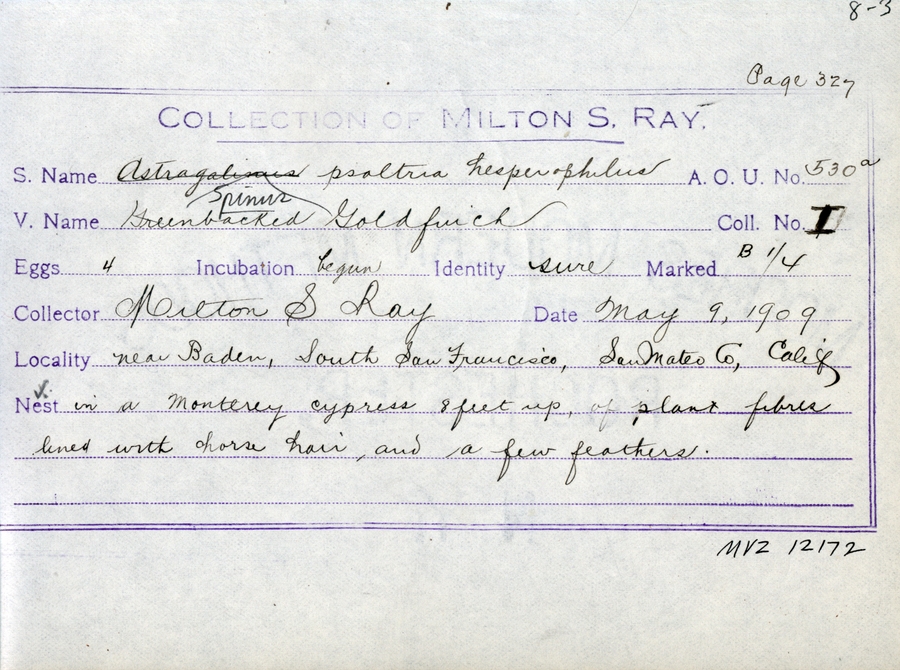 8-3
Page 327
COLLECTION OF MILTON S. RAY.
S. Name Astragalinus psaltria hesperophilus A. O. U. No. 530a
Spinus
V. Name Greenbacked Goldfinch Coll. No. I
Eggs 4 Incubation begun Identity sure Marked B 1/4
Collector Milton S Ray Date May 9, 1909
Locality near Baden, South San Francisco, San Mateo Co, Calif
Nest in a Monterey cypress 8 feet up, of plant fibres
lined with horse hair, and a few feathers.
MVZ 12172